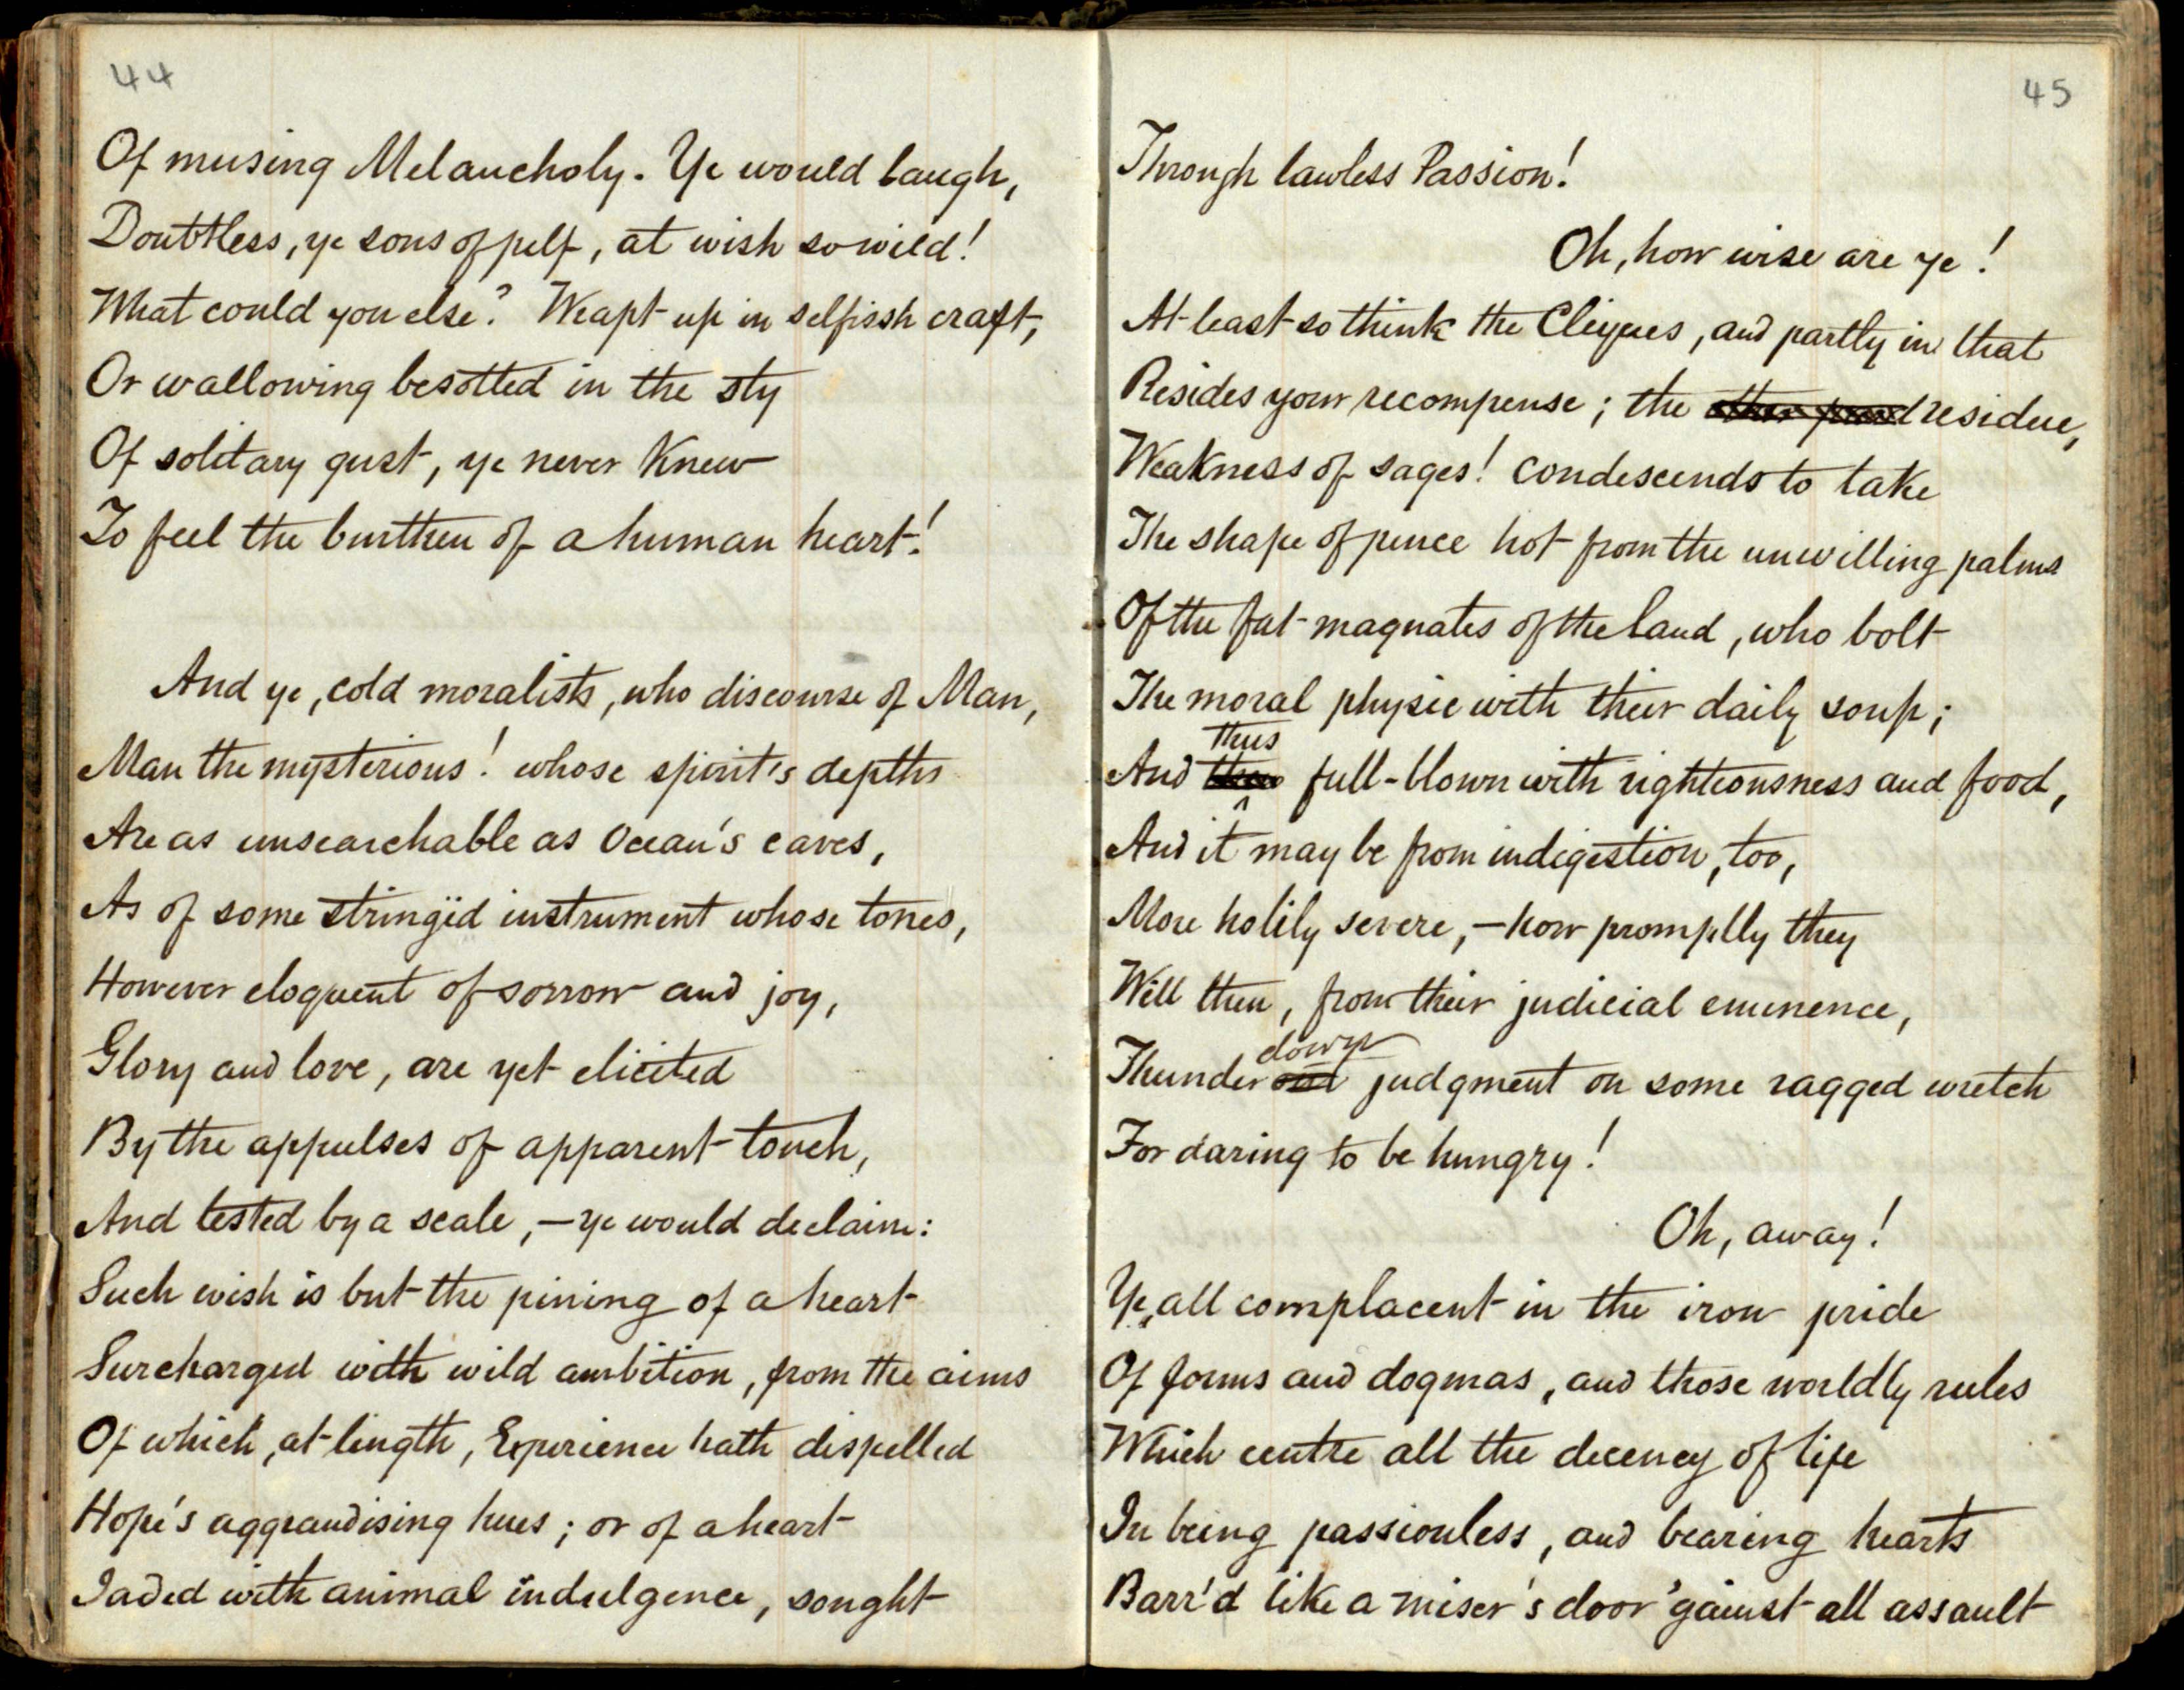 44
Of musing Melancholy. Ye would laugh,
Doubtless, ye sons of pelf, at wish so wild!
What could you else? Wrapt up in selfissh craft,
Or wallowing besotted in the sty
Of solitary gust, ye never knew
To feel the burthen of a human heart!
And ye, cold moralists, who discourse of Man,
Man the mysterious! whose spirit's depths
Are as unsearchable as Ocean's caves,
As of some stringëd instrument whose tones,
However eloquent of sorrow and joy,
Glory and love, are yet elicited
By the appulses of apparent touch,
And tested by a scale, — ye would declaim:
Such wish is but the pining of a heart
Surcharged with wild ambition, from the aims
Of which, at length, Experience hath dispelled
Hope's aggrandising hues; or of a heart
Jaded with animal indulgence, sought
45
Through lawless Passion!
Oh, how wise are ye!
At least so think the Cliques, and partly in that
Resides your recompense; the residue,
Weakness of sages! condescends to take
The shape of pence hot from the unwilling palms
Of the fat magnates of the land, who bolt
The moral physic with their daily soup;
thus
And full-blown with rightionsness and food,
And it may be from indigestion, too,
More holily severe, — how promptly they
Will then, from their judicial eminence,
down
Thunder out judgment on some ragged wretch
For daring to be hungry!
Oh, away!
Ye, all complacent in the iron pride
Of forms and dogmas, and those worldly rules
Which centre all the decency of life
In being passionless, and bearing hearts
Barr'd like a miser's door 'gainst all assault